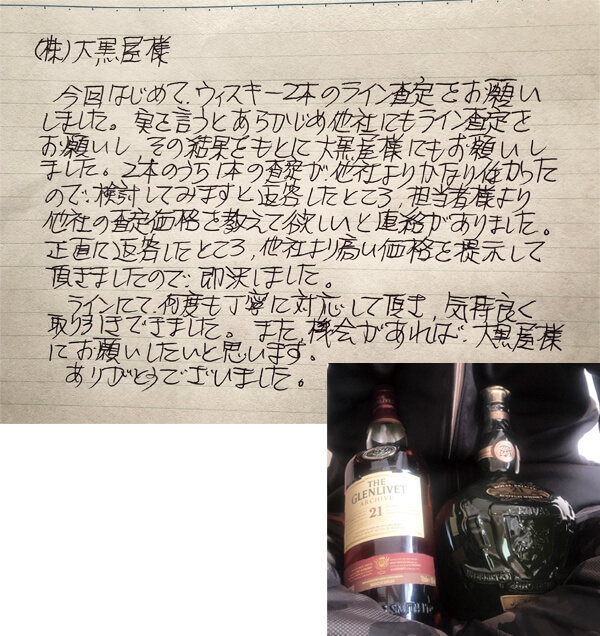 (株)大黒屋様
今回はじめて、ウィスキー2本のライン査定をお願い
しました。実を言うとあらかじめ他社にもライン査定を
お願いし その結果をもとに大黒屋様にもお願いし
ました。2本のうち1本の査定が他社よりかなり低かった
ので、検討してみますと返答したところ、担当者様より
他社の査定価格を教えて欲しいと連絡がありました。
正直に返答したところ、他社より高い価格を提示して
頂きましたので、即決しました。
ラインにて、何度も丁寧に対応して頂き、気持良く
取り引きできました。また、機会があれば、大黒屋様
にお願いしたいと思います。
ありがとうございました。
THE
GLENLIVET
ARCHIVE
21